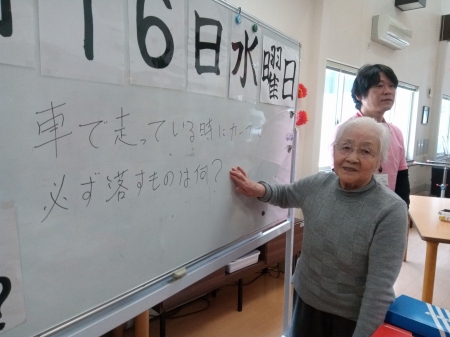 16日水曜日
車で走っている時にカーブで
必ず落すものは何?
?